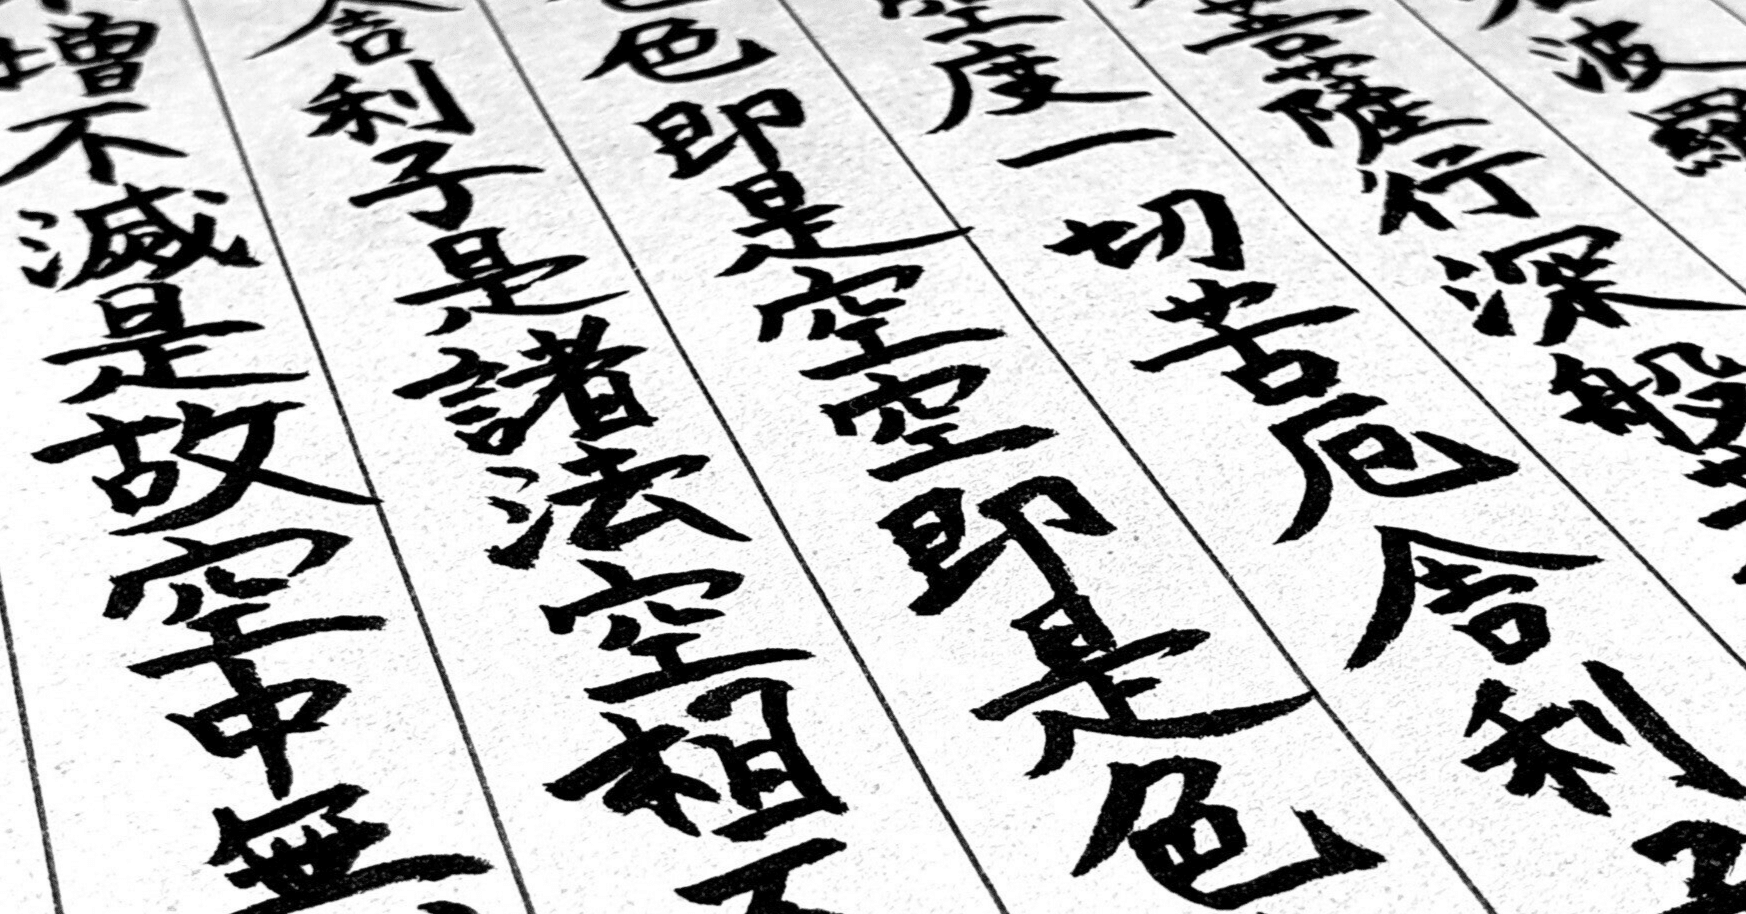 波羅
菩薩行深般
空度一切苦厄舎利子
色即是空空即是色
舎利子是諸法空相不
増不滅是故空中無